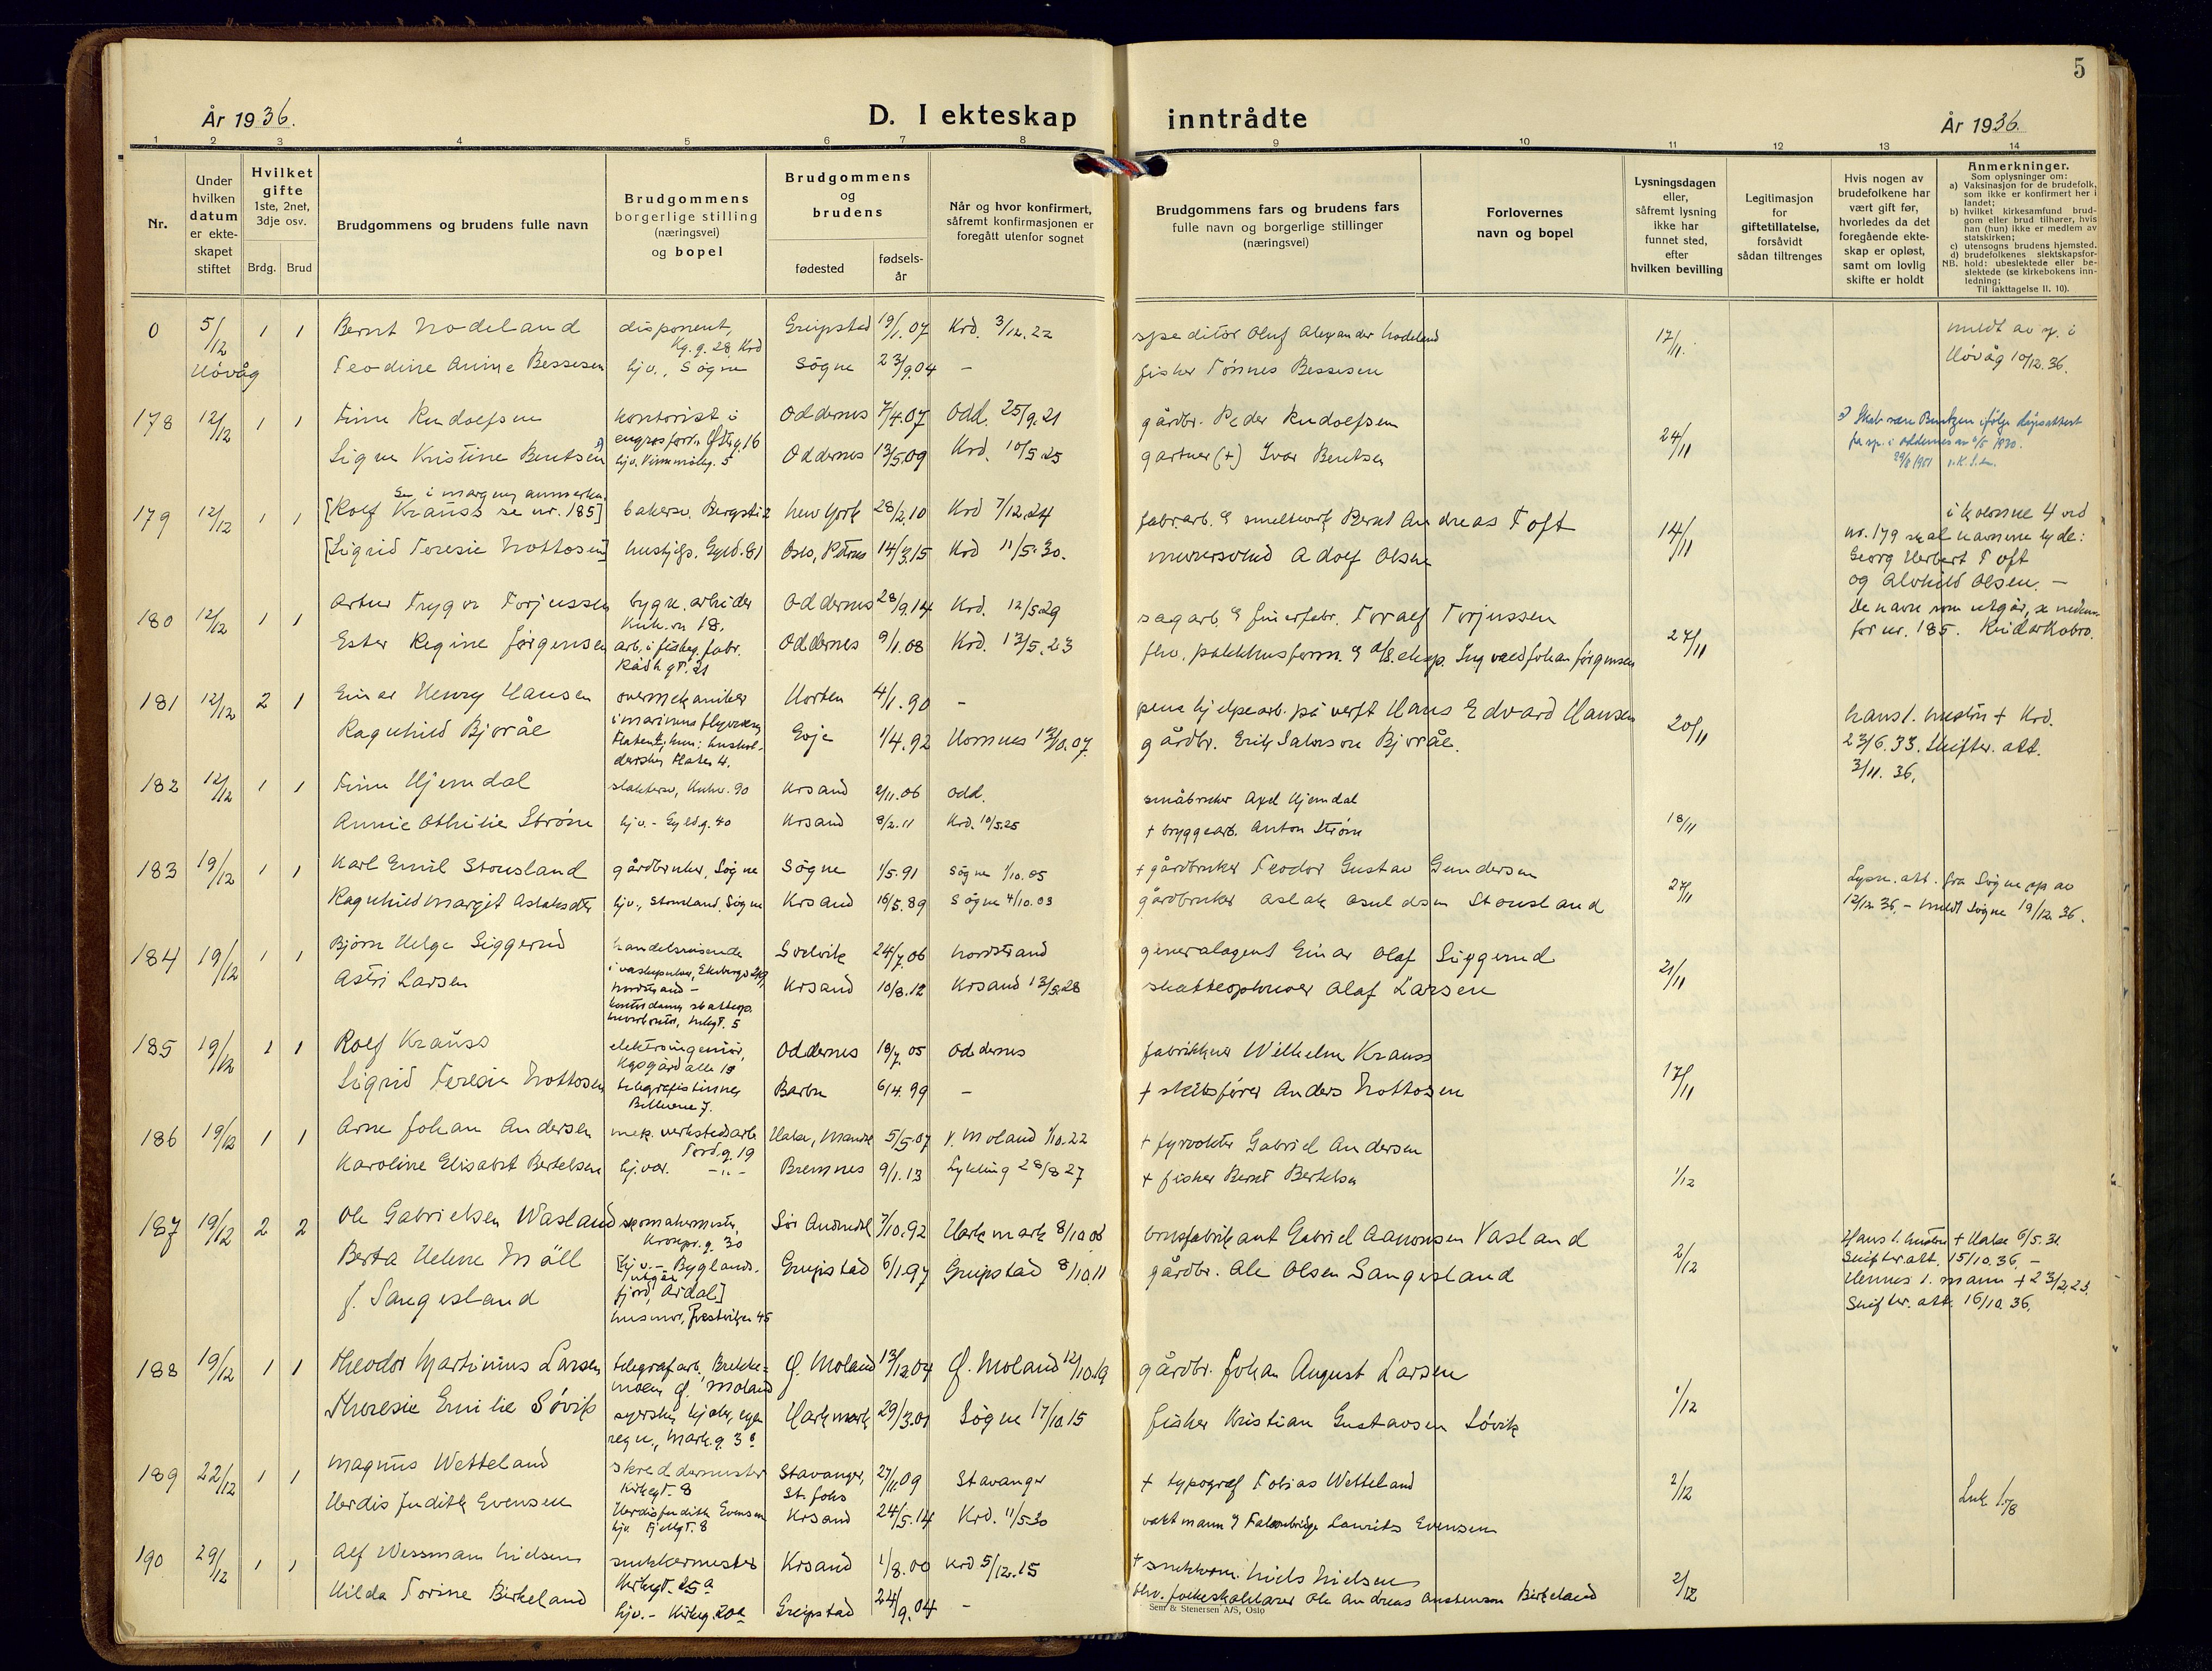 5
År 1936.
D. I ekteskap inntrådte
År 1936.
1 2 3 4 5 6 7 8 9 10 11 12 13 14
Nr.
Under hvilken datum er ekte-skapet stiftet
Hvilket gifte 1ste, 2net, 3dje osv.
Brdg. Brud
Brudgommens og brudens fulle navn
Brudgommens borgerlige stilling (næringsvei) og bopel
Brudgommens og brudens
fødested
fødsels-år
Når og hvor konfirmert, såfremt konfirmasjonen er foregått utenfor sognet
Brudgommens fars og brudens fars fulle navn og borgerlige stillinger (næringsvei)
Forlovernes navn og bopel
Lysningsdagen eller, såfremt lysning ikke har funnet sted, efter hvilken bevilling
Legitimasjon for giftetillatelse, forsåvidt sådan tiltrenges
Hvis nogen av brudefolkene har vært gift før, hvorledes da det foregående ekte-skap er opløst, samt om lovlig skifte er holdt
Anmerkninger.
Som oplysninger om:
a) Vaksinasjon for de brudefolk, som ikke er konfirmert her i landet;
b) hvilket kirkesamfund brud-gom eller brud tilhører, hvis han (hun) ikke er medlem av statskirken;
c) utensogns brudens hjemsted.
d) brudefolkenes slektskapsfor-hold: ubeslektede eller be-slektede (se kirkebokens inn-ledning;
NB.
Til iakttagelse II. 10).
0 5/12 1 1 Bernt Nodeland disponent, Kg. g. 28 Krd Greipstad 19/1.07 Krd. 3/12.22 speditør Oluf Alexander Nodeland 17/11. meldt av sp. i
Høvåg Teodine Anine Bessesen hjv., Søgne Søgne 23/9.04 - fisker Tønnes Bessesen Høvåg 10/12.36.
178 12/12 1 1 Finn Rudolfsen kontorist i engrosforr. Oddernes 7/4.07 Odd. 25/9.21 gårdbr. Peder Rudolfsen 24/11
Signe Kristine Bentsen hjv. Oddernes 13/5.09 Krd. 10/5.25 gartner (+) Ivar Bentsen
Se i margen anmerkn.
179 12/12 1 1 [Rolf Krauss se nr. 185] bakersv. New York 28/2.10 Krd 7/12.24 fabr.arb. Bernt Andreas Toft 14/11 i kolonne 4 ved
[Sigrid Teresie Nottosen] hushjelp. Gyld. 81 Oslo, Petrus 14/3.15 Krd 11/5.30. murersvend Adolf Olsen nr. 179 skal navnene lyde:
Georg Herbert Toft
og Alvhild Olsen. -
180 12/12 1 1 Artur Trygve Torjussen bygn. arbeider Kuh.v. 18. Oddernes 28/9.14 Krd. 12/5.29 sagarb. Toralf Torjussen 27/11 De navne som utgår, se neden-
Ester Regine Jørgensen arb. i fiskeg. fabr. Rådh. gt. 21 Oddernes 9/1.08 Krd. 13/5.23 fhv. pakkhusform. Ingvald Johan Jørgensen for nr. 185.
181 12/12 2 1 Einar Henry Hansen overmekaniker i marinens flyvevesen Horten 4/1.90 - pens. hjelpearb. på verft Hans Edvard Hansen 20/11 hans 1. hustru + Krd.
Ragnhild Bjorål Evje 1/4.92 Hornnes 13/10.07 gårdbr. Erik Salveson Bjorål. 23/6.33. Skifter. att.
3/11.36.
182 12/12 1 1 Finn Hjemdal slaktersv., Kuhv. 90 Krsand 2/11.06 Odd. småbruker Axel Hjemdal 18/11
Annie Othilie Strøm hjv. - Gyld.g. 40 Krsand 8/2.11 Krd. 10/5.25 + bryggearb. Anton Strøm
183 19/12 1 1 Karl Emil Stousland gårdbruker, Søgne Søgne 1/5.91 Søgne 1/10.05 + gårdbruker Teodor Gustav Gundersen 27/11 Lysn. att. fra Søgne sp av
Ragnhild Margit Aslaksdtr hjv., Stousland, Søgne Krsand 16/5.89 Søgne 4/10.03 gårdbruker Aslak Asuldsen Stousland 12/12.36. - meldt Søgne 19/12.36.
184 19/12 1 1 Bjørn Helge Siggerud handelsreisende Svelvik 24/7.06 Nordstrand generalagent Einar Olaf Siggerud 21/11
Astri Larsen Krsand 10/8.12 Krsand 13/5.28 skatteopkrever Olaf Larsen
185 19/12 1 1 Rolf Krauss elektroingeniør, Kgsgård alle 18 Oddernes 18/7 05 Oddernes fabrikkeier Wilhelm Krauss 17/11
Sigrid Teresie Nottosen telegrafistinne, Barbu 6/4.99 - + skibsfører Anders Nottosen
186 19/12 1 1 Arne Johan Andersen mek. verkstedsarb. Tord.g. 19 5/5.07 V. Moland 1/10.22 + fyrvokter Gabriel Andersen 1/12
Karoline Elisabet Bertelsen hj.var. -"- Bremnes 9/1.13 Lykling 28/8 27 + fisker Bernt Bertelsen
187 19/12 2 2 Ole Gabrielsen Vasland skomakermester, Kronpr. g. 30 Sør Audnedal 7/10.92 Harkmark 8/10 06 brusfabrikant Gabriel Aanonsen Vasland 2/12 Hans 1. hustru + 6/5.31
Berta Helene Mäll [hjv. - Byglands-fjord, Årdal] utgår Greipstad 6/1.97 Greipstad 8/10.11 gårdbr. Ole Olsen Sangesland Skifter.att. 15/10.36. -
f. Sangesland husmor, Hennes 1. mann + 23/2.23.
Skifter. att. 16/10.36.
188 19/12 1 1 Theodor Martinius Larsen telegrafarb., Brekke-moen Ø. Moland Ø. Moland 13/12.04 Ø. Moland 12/10.19 gårdbr. Johan August Larsen 1/12
Theresie Emilie Søvik syerske Harkmark 29/3.01 Søgne 17/10.15 fisker Kristian Gustavsen Søvik
189 22/12 1 1 Magnus Wetteland skreddermester Kirkegt. 8 Stavanger, St. Johs 27/11.09 Stavanger + typograf Tobias Wetteland 2/12
Herdis Judith Evensen Herdis Judith Evensen hjv. Krsand 24/5.14 Krd. 11/5 30 vaktmann Falconbridge Laurits Evensen
190 29/12 1 1 Alf Wessmann Nielsen snekkermester Kirkegt. 25a Krsand 1/8.00 Krd 5/12.15 + snekkerm. Niels Nielsen 2/12
Hilda Torine Birkeland hjv. - Kirkeg. 20a Greipstad 24/9.04 - fhv. folkeskolelærer Ole Andreas Austenson Birkeland
Sem & Stenersen A/S, Oslo